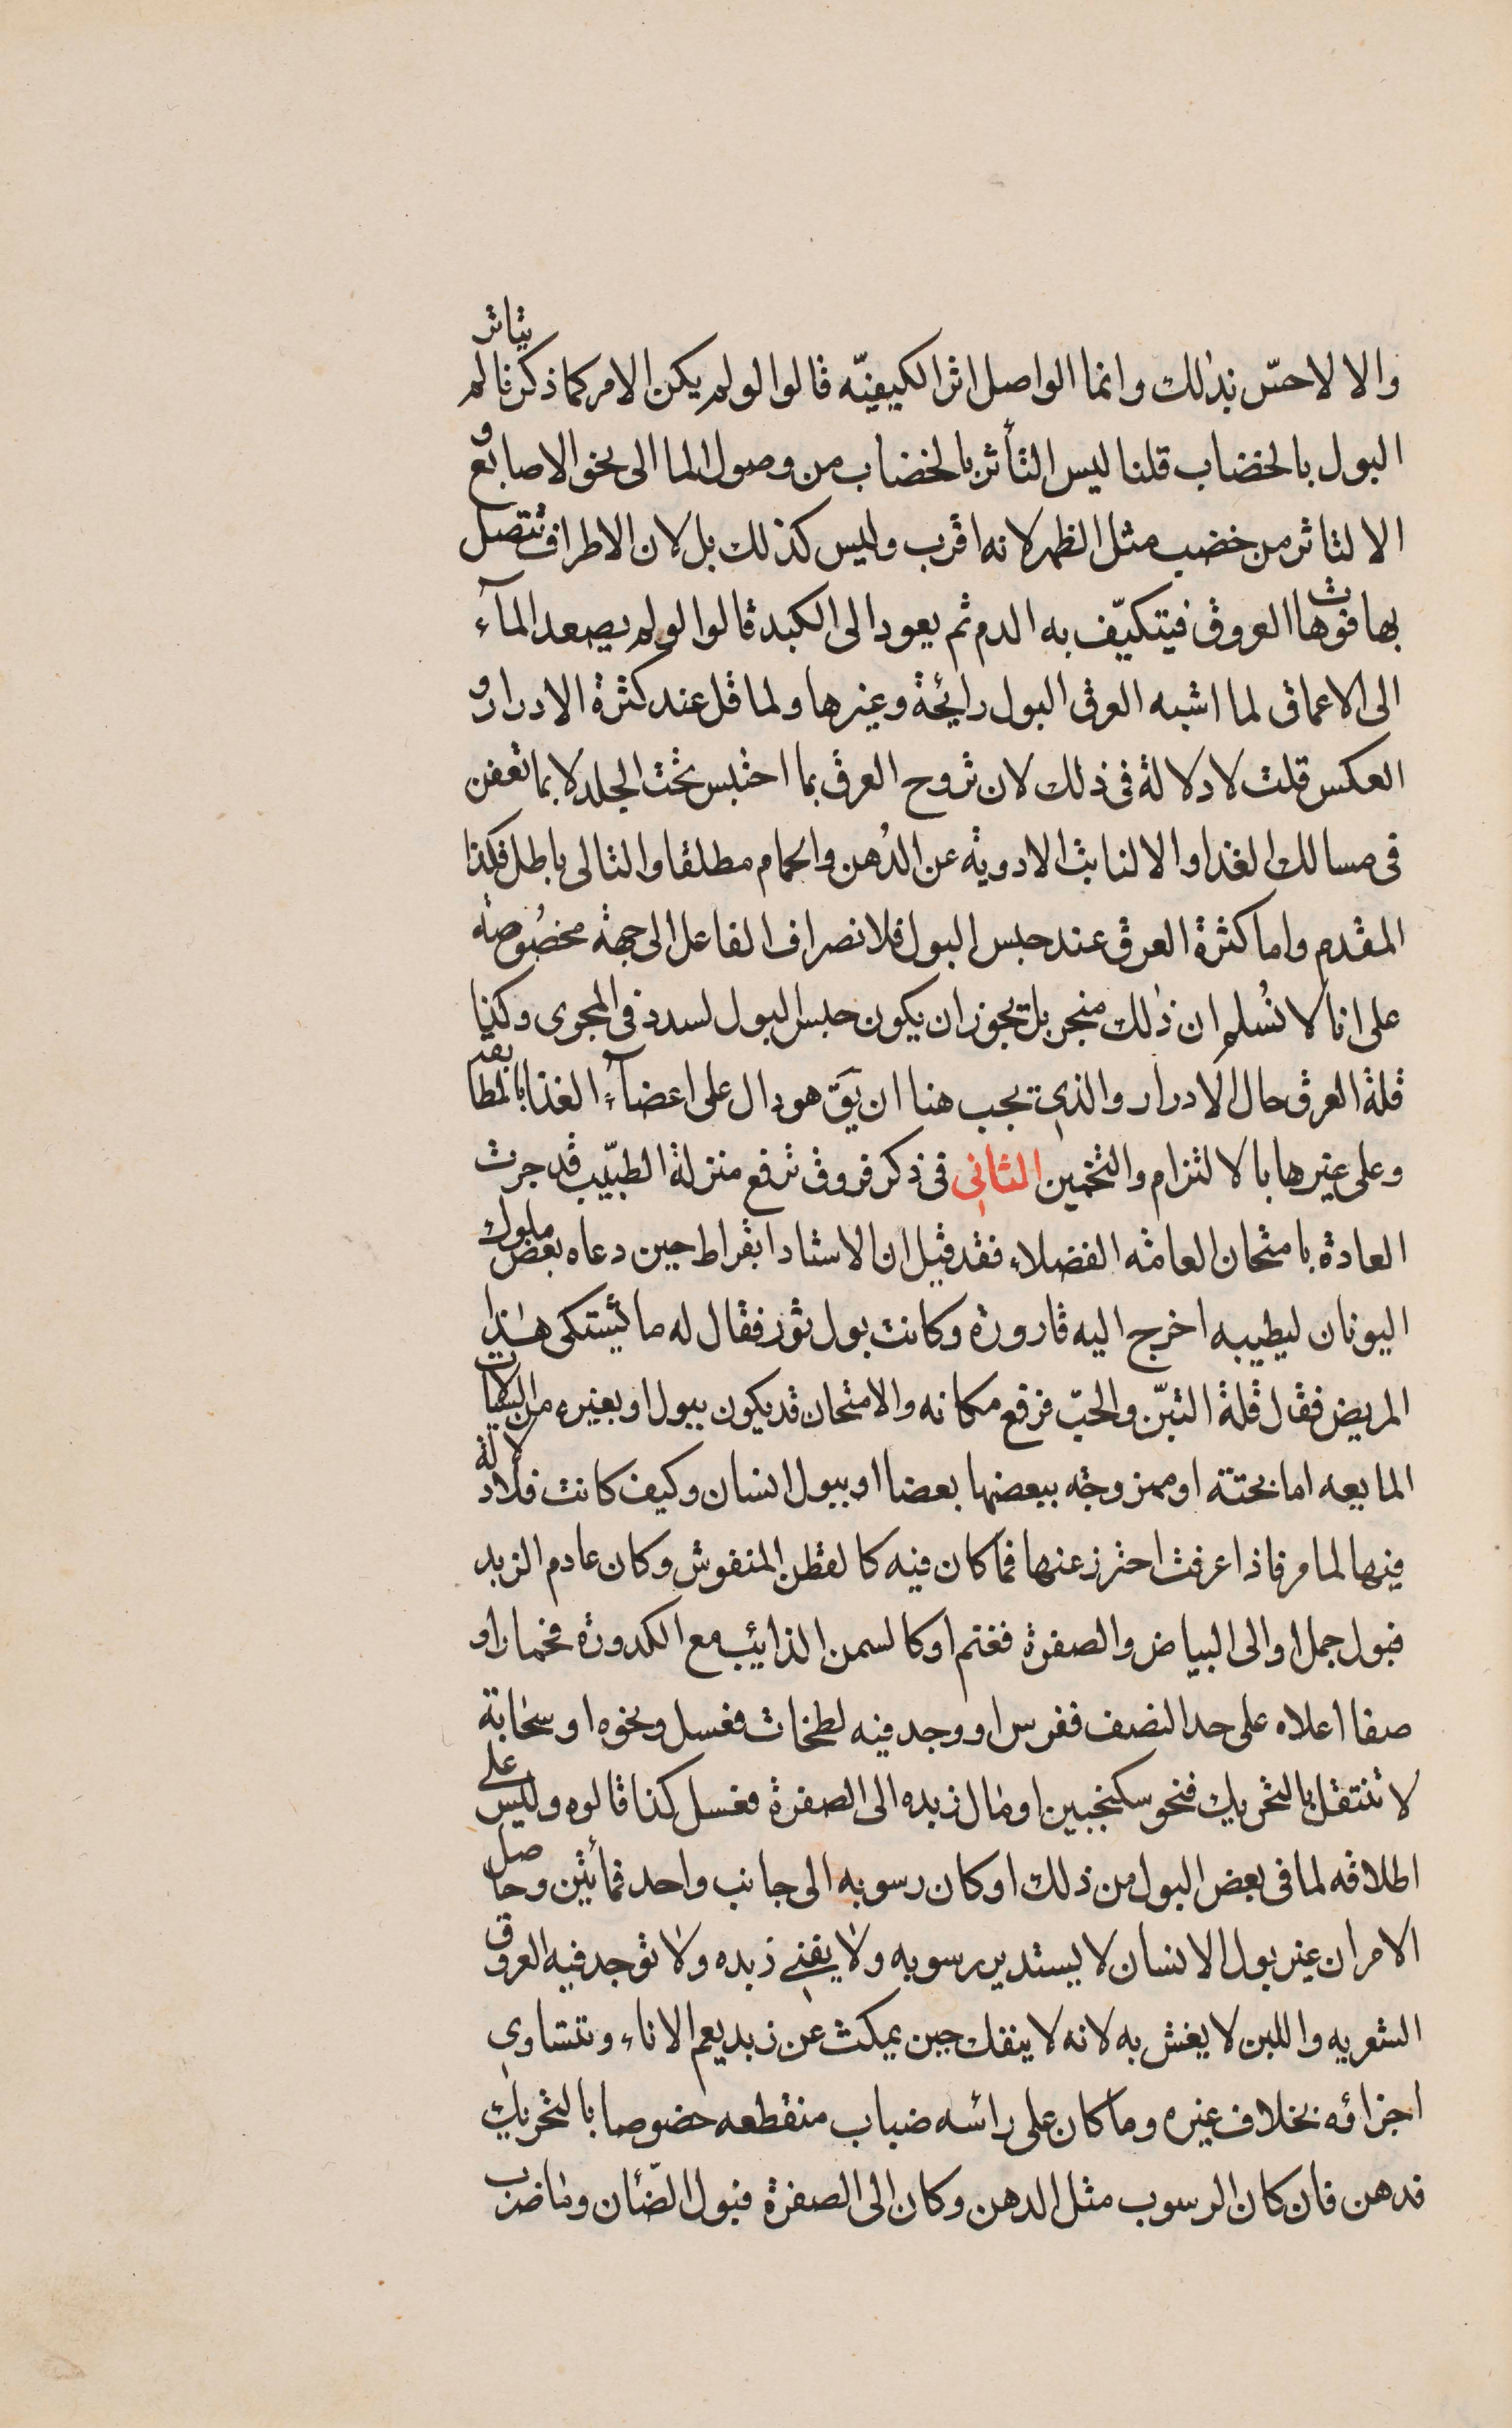 والا لاحسّ بذلك وانما الواصل اثر الكيفيّه قالوا لو لم يكن الامر كما ذكرنا لم يتاثر
البول بالخضاب قلنا ليس التأثر بالخضاب من وصول الما الى نحو الاصابع و
الا لتاثر من خضب مثل الظهر لانه اقرب وليس كذلك بل لان الاطراف تتصل
بها فوهات العروق فيتكيّف به الدم ثم يعود الى الكبد قالوا لو لم يصعد المآء
الى الاعماق لما اشبه العرق البول رايحة وغيرها ولما قل عند كثرة الادرار و
العكس قلت لا دلالة فى ذلك لان تروح العرق بما احتبس تحت الجلد لا بما تعفن
فى مسالك الغذا والا لنابت الادوية عن الدُهن والحمام مطلقا والتالى باطل فكذا
المقدم واما كثرة العرق عند حبس البول فلانصراف الفاعل الى جهة مخصُوصة
على انا لا نُسلم ان ذلك منجر بل يجوز ان يكون حبس البول لسدد فى المجرى وكذا
قلة العرق حال الادرار والذي يجب هنا ان يَق هو دال على اعضآء الغذا بالمطابقه
وعلى غيرها بالالتزام والتخمين الثاني فى ذكر فروق ترفع منزلة الطبّيب قد جرت
العادة بامتحان العامة الفضلاء فقد قيل ان الاستاد ابقراط حين دعاه بعض ملوك
اليونان ليطيبه اخرج اليه قارورة وكانت بول ثور فقال له ما يشتكى هذا
المريض فقال قلة التبّن والحبّ فرفع مكانه والامتحان قد يكون ببول او بغيره من السيالات
المايعه اما بحتة او ممزوجة ببعضها بعضا او ببول انسان وكيف كانت فلا دلالة
فيها لما مر فاذا عرفت احترز عنها فما كان فيه كالقطن المنفوش وكان عادم الزبد
فبول جمل او الى البياض والصفرة فغنم او كالسمن الذايب مع الكدورة فحمار او
صفا اعلاه على حد النصف ففرس او وجد فيه لطخات فعسل ونحوه او سحابة
لا تنتقل بالتحريك فنحو سكنجبين او مال زبده الى الصفرة فعسل كذا قالوه وليس على
اطلاقه لما فى بعض البول من ذلك او كان رسوبه الى جانب واحد فمأتين وحاصل
الامر ان غير بول الانسان لا يستدير رسوبه ولا يفني زبده ولا توجد فيه العروق
الشعريه واللبن لا يغش به لانه لا ينفك حين يمكث عن زبد يعم الاناء وتتساوي
اجزاؤه بخلاف غيره وما كان على رأسه ضباب منقطعه خصوصا بالتحريك
فدهن فان كان الرسوب مثل الدهن وكان الى الصفرة فبول الضّان وناضرب